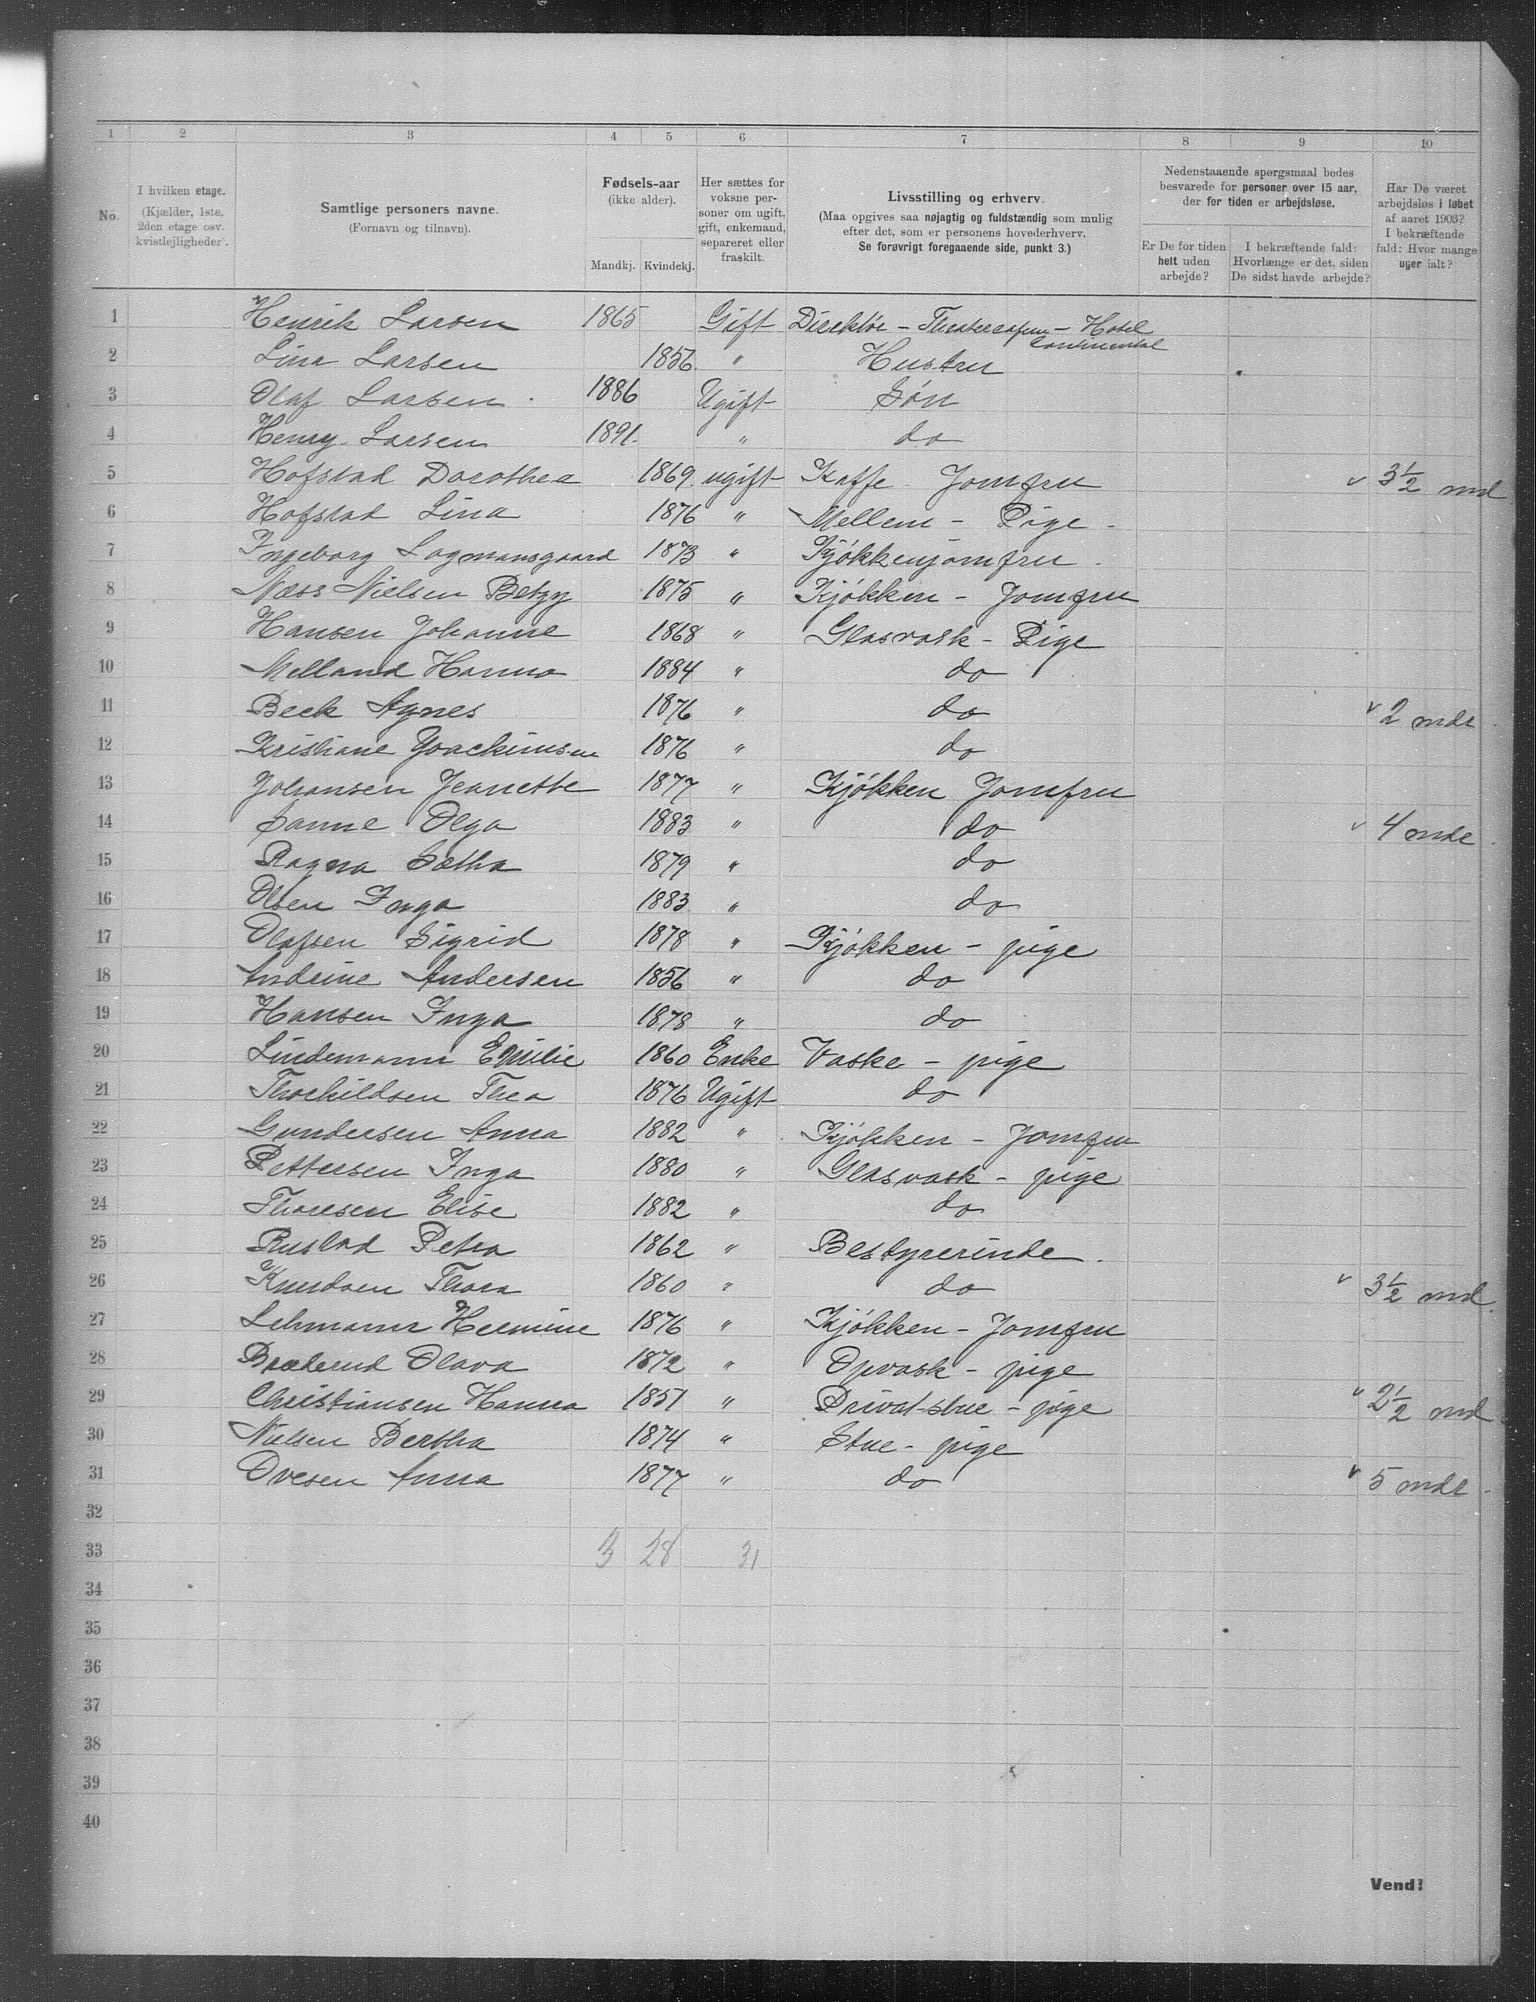 1 2 3 4 5 6 7 8 9 10
No.
I hvilken etage.
(Kjælder, 1ste,
2den etage osv.
kvistlejligheder.
Samtlige personers navne.
(Fornavn og tilnavn).
Fødsels-aar
(ikke alder).
Mandkj. Kvindekj.
Her sættes for
voksne per-
soner om ugift,
gift, enkemand,
separeret eller
fraskilt.
Livsstilling og erhverv.
(Maa opgives saa nøjagtig og fuldstændig som mulig
efter det, som er personens hovederhverv.
Se forøvrigt foregaaende side, punkt 3.)
Nedenstaaende spørgsmaal bedes
besvarede for personer over 15 aar,
der for tiden er arbejdsløse.
Er De for tiden
helt uden
arbejde?
I bekræftende fald:
Hvorlænge er det, siden
De sidst havde arbejde?
Har De været
arbejdsløs i løbet
af aaret 1903?
I bekræftende
fald: Hvor mange
uger ialt?
1 Henrik Larsen 1865 Gift Direktør - Theatercafeen - Hotel
Continental
2 Lina Larsen 1856 " Hustru
3 Olaf Larsen 1886 Ugift Søn
4 Henry Larsen 1891 " do
5 Hofstad Dorothea 1869 ugift Kaffe Jomfru v 3½ md
6 Hofstad Lina 1876 " Mellem - Pige
7 Ingeborg Lagmansgaard 1873 " Kjøkkenjomfru
8 Næss Nielsen Betzy 1875 " Kjøkken - Jomfru
9 Hansen Johanne 1868 " Glasvask - Pige
10 Melland Hanna 1884 " do
11 Beck Agnes 1876 " do v 2 mdr
12 Kristiane Joackimsen 1876 " do
13 Johansen Jeanette 1877 " Kjøkken Jomfru
14 Sanne Olga 1883 " do v 4 mdr
15 Ragna Sætha 1879 " do
16 Olsen Inga 1883 " do
17 Olafsen Sigrid 1878 " Kjøkken - pige
18 Andrine Andersen 1856 " do
19 Hansen Inga 1878 " do
20 Lindemann Emilie 1860 Enke Vaske - pige
21 Thorkildsen Thea 1876 Ugift do
22 Gundersen Anna 1882 " Kjøkken - Jomfru
23 Pettersen Inga 1880 " Glasvask - pige
24 Thoresen Elise 1882 " do
25 Rustad Petra 1862 " Bestyrerinde
26 Knudsen Thora 1860 " do v 3½ md
27 Lehmann Hermine 1876 " Kjøkken - Jomfru
28 Braterud Olava 1872 " Opvask - pige
29 Christiansen Hanna 1851 " Privat-stue - pige v 2½ md
30 Nielsen Bertha 1874 " Stue - pige
31 Ovesen Anna 1877 " do v 5 mdr
32
33 3 28 31
34
35
36
37
38
39
40
Vend!